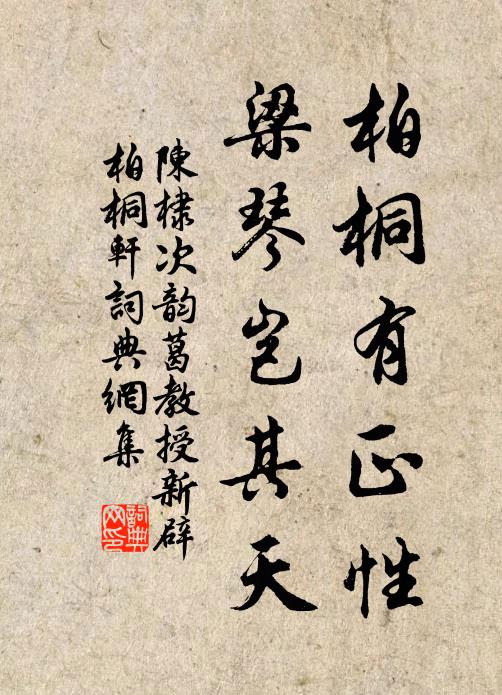 柏桐有正性
梁琴岂其天
陳棣次韵葛教授新辟
柏桐軒詞典網集
詞典
网印